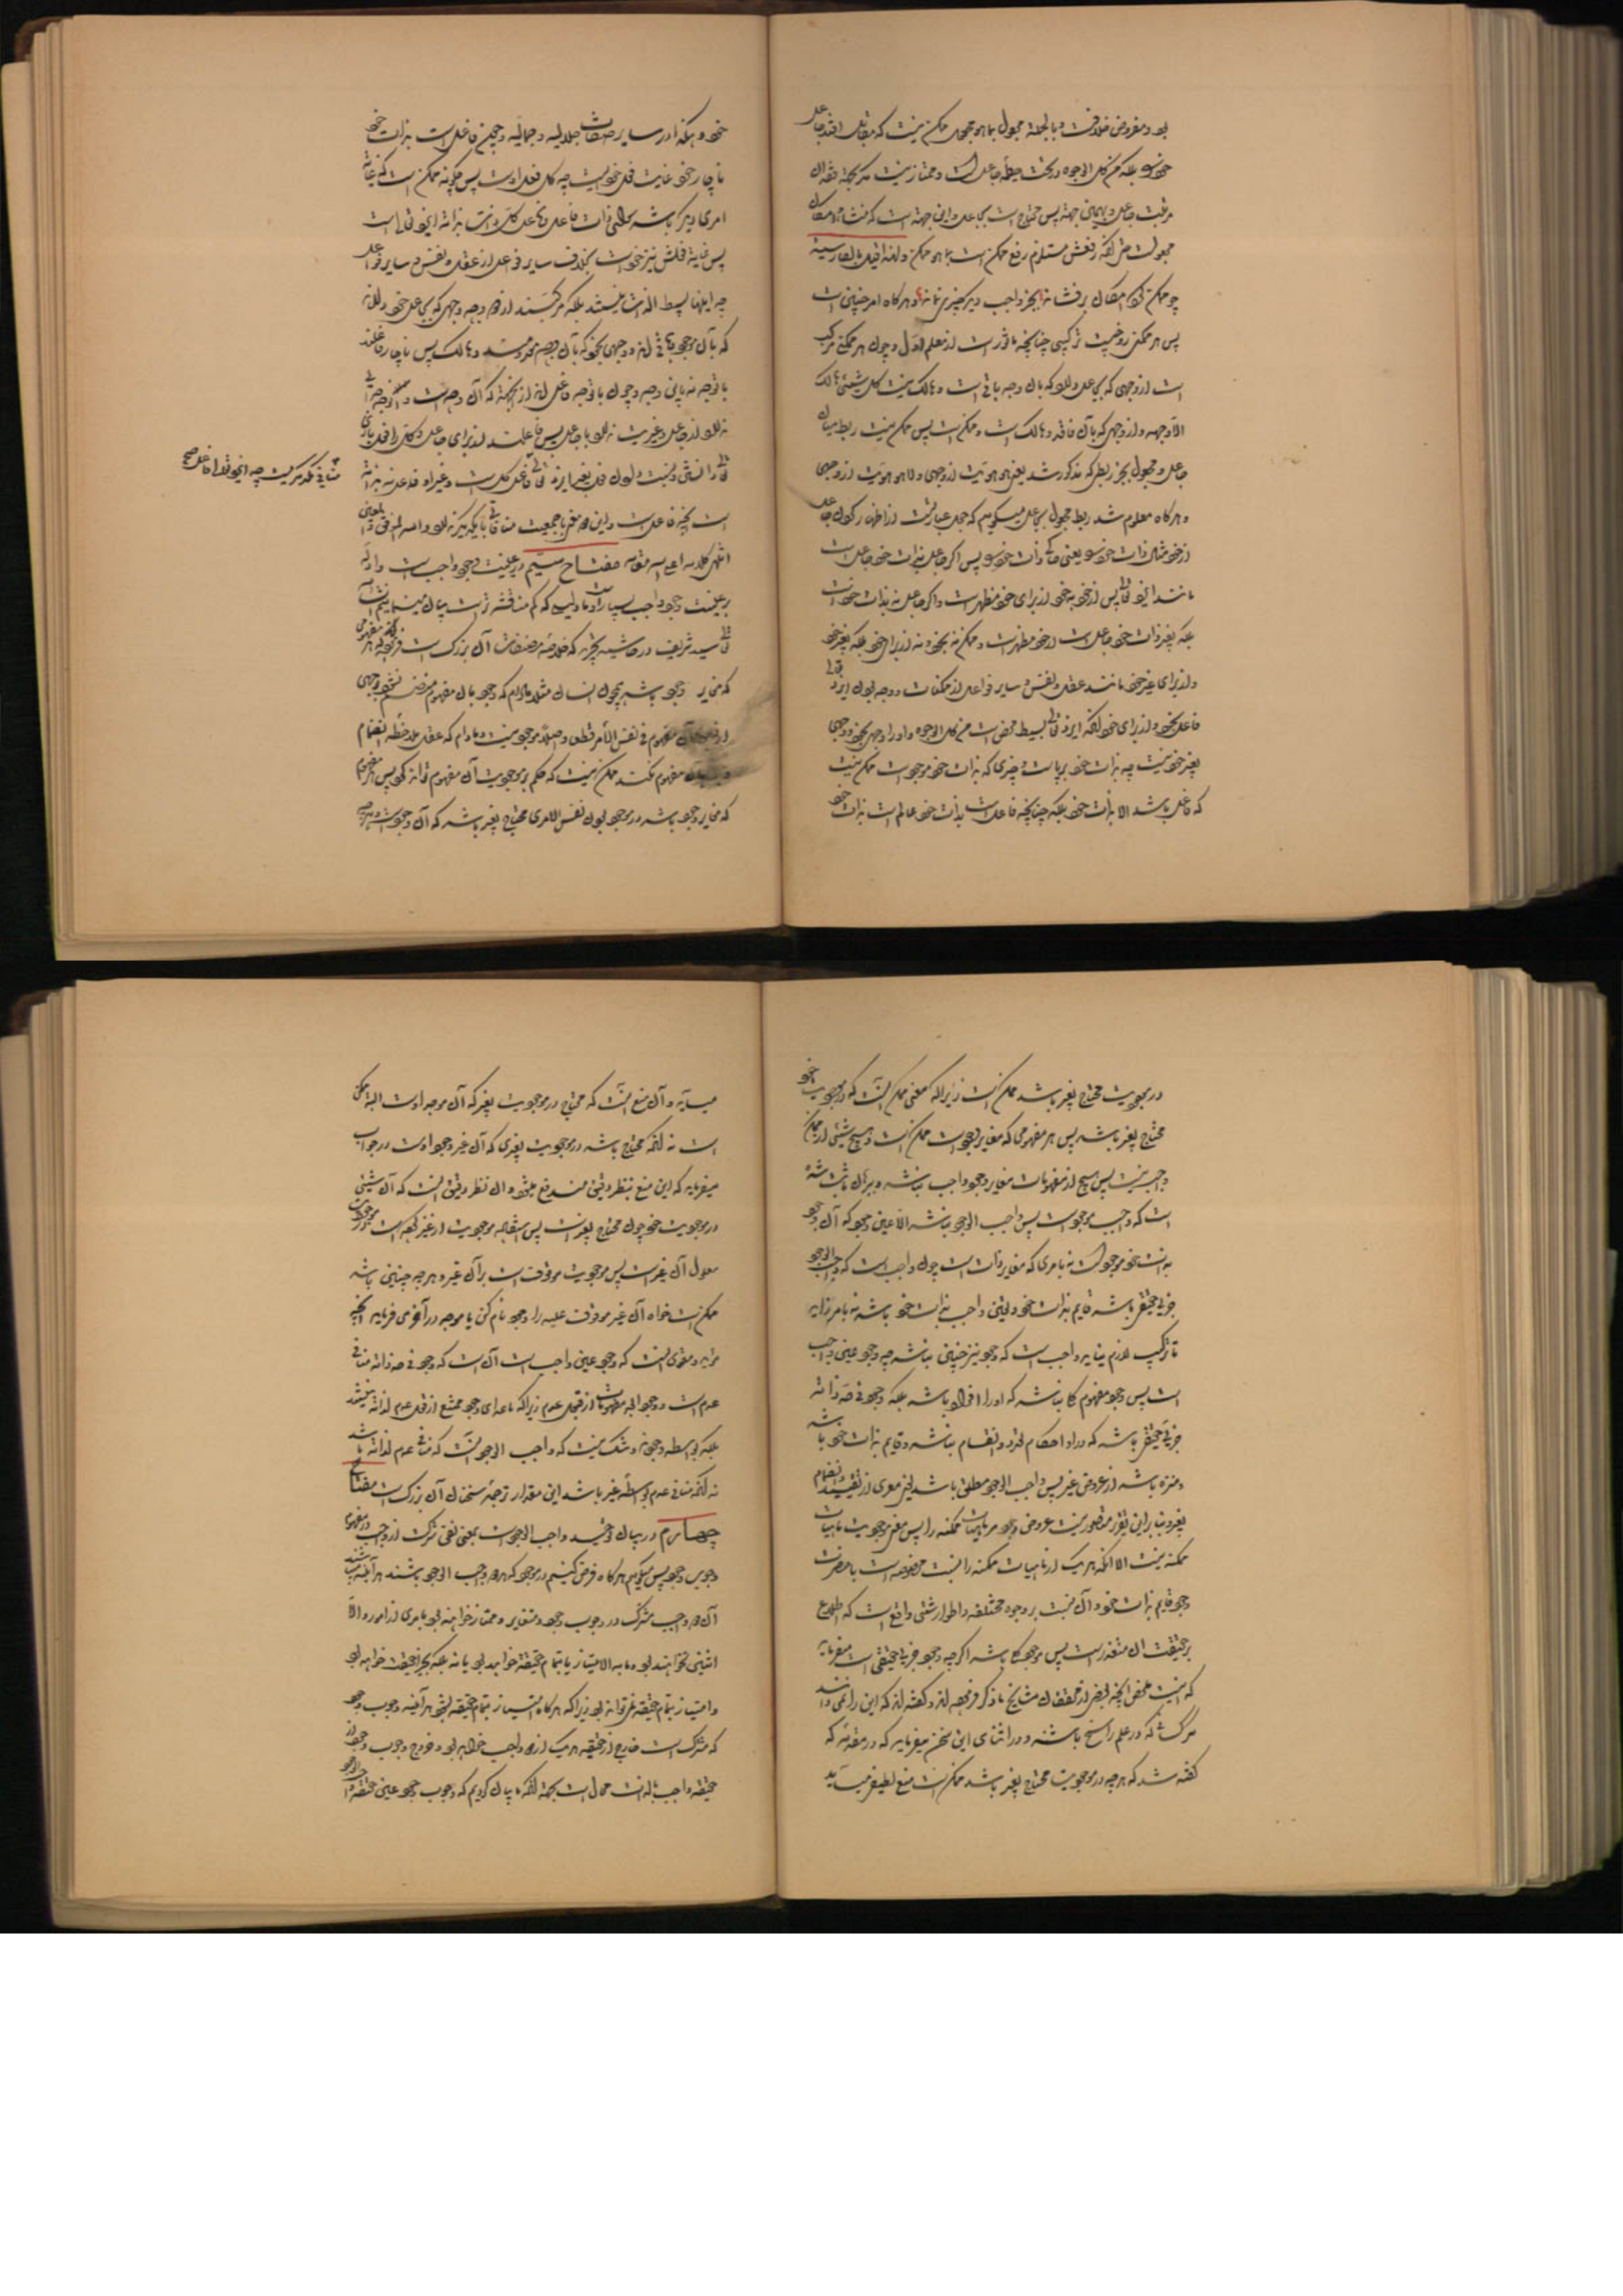 بود و مفروض خلاف است و بالجملة مجعول بما هو مجعول ممکن نیست که مقابل افتد جاعل
خود بلکه من کل الوجوه در تحت حیطه جاعل است و ممتاز نیست مگر بجهة فقدان
مرتبت جاعل و بهمان جهة پس محتاج است بجاعل و این جهة است که منشاء امکان
مجعول است رفعش مستلزم رفع ممکن است بما هو ممکن ولهذا قیل بالفارسیة
چو ممکن گرد امکان برفشاند بجز واجب دگر چیزی نماند و هرگاه امر چنین است
پس هر ممکن زوجیست ترکیبی چنانچه ماثور است از معلم اول و چون هر ممکن مرکب
است از وجهی که بجاعل دارد که بآن وجه باقی است و هالک نیست کل شیئی هالک
الا وجهه و از وجهی که بآن فاقد و هالک است و ممکن است پس ممکن نیست ربط میان
جاعل و مجعول بجز ربطی که مذکور شد یعنی هو هویت از وجهی و لا هو هویت از وجهی
و هرگاه معلوم شد ربط مجعول بجاعل میگوئیم که جعل عبارتست از اظهار کردن جاعل
از خود مثال ذات خود را یعنی ذات خود پس اگر جاعل بذات خود جاعل است
مانند ایزد تعالی پس از خود به خود از برای خود مظهر است و اگر جاعل نه بذات خود است
بلکه بغیر ذات خود جاعل است از خود مظهر است و ممکن نه بخود و نه از برای خود بلکه بغیر خود
و از برای غیر خود مانند عقل و نفس و سایر فواعل از ممکنات و وجه بودن ایزد تعالی
فاعل بخود و از برای خود آنکه ایزد تعالی بسیط محض است من کل الوجوه و او را وجهی بخود و وجهی
بغیر خود نیست چه بذات خود برپاست و چیزی که بذات خود موجود است ممکن نیست
که فاعل باشد الا بذات خود بلکه چنانچه فاعل است بذات خود عالم است بذات خود
خود و هکذا در سایر صفات جلالیه و جمالیه و چون فاعل است بذات خود
ناچار خود غایت فعل خود است چه کل فعل اوست پس چگونه ممکن است که غایة
امری دیگر باشد سوای ذات فاعل و فاعل کل ذات بذاته ایزد تعالی است
پس غایة فعلش نیز خود است بخلاف سایر فواعل از عقل و نفس و سایر فواعل
چه اینها بسیط الذات نیستند بلکه مرکبند از دو وجه وجهی که بجاعل خود دارند
که بآن موجود و باقی اند و وجهی بخود که بآن وجه معدومند و هالک پس ناچار فاعلند
باوجه نه باین وجه و چون باوجه فاعل اند از جهة که آن وجه است
نه از جاعل و غیریت ندارد با جاعل پس فاعلند از برای جاعل و کل را فعل باری
تعالی دانستن و نسبت دادن فعل بغیر ایزد تعالی فاعل کل است و غیر او فاعل نه بذاته
است بلکه فاعل است و این دو معنی با جمعیت منافات با یکدیگر ندارد والله الموفق
انتهی کلامه اعلی الله مقامه مفتاح سیم در عینیت وجود واجب است و ادله
بر عینیت وجود واجب بسیار است اما دلیلی که کم مناقشه تر است بیان مینمائیم
سید شریف در حاشیه تجرید که خلاصه مصنفات آن بزرگ است فرموده که هر مفهومی
که مغایر وجود باشد همچون انسان مثلا مادام که وجود بآن مفهوم منضم نشود بوجهی
از وجوه آن مفهوم فی نفس الامر قطعا و اصلا موجود نیست و مادام که عقل ملاحظه انضمام
وجود بآن مفهوم نکند ممکن نیست که حکم بر موجودیت آن مفهوم تواند کرد پس هر مفهوم
که مغایر وجود باشد در موجود بودن نفس الامری محتاج بغیر باشد که آن وجود است و هرچه
در موجودیت محتاج بغیر باشد ممکن است زیرا که معنی ممکن آنست که در موجودیت خود
محتاج بغیر باشد پس هر مفهومی که مغایر وجود است ممکن است و هیچ شیئی از ممکن
واجب نیست پس هیچ از مفهومات مغایر وجود واجب نباشد و ببرهان ثابت شده
است که واجب موجود است پس واجب الوجود نباشد الا عین وجود که آن وجود
بذات خود موجود است نه بامری که مغایر ذات است چون واجب است که واجب الوجود
جزئی حقیقی باشد قایم بذات خود و تعین واجب بذات خود باشد نه بامر زاید
تا ترکیب لازم نیاید واجب است که وجود نیز چنین باشد چه وجود عین واجب
است پس وجود مفهوم کلی نباشد که او را افراد باشد بلکه وجود فی حد ذاته
جزئی حقیقی باشد که در او احکام تعدد و انقسام نباشد و قایم بذات خود باشد
و منزه باشد از عروض غیر پس واجب الوجود مطلق باشد یعنی معری از تقیید و انضمام
بغیر و بنابراین تقریر متصور نیست عروض وجود مر ماهیات ممکنه را پس معنی موجودیت ماهیات
ممکنه نیست الا آنکه هر یک از ماهیات ممکنه را نسبت مخصوصه است بحضرت
وجود قایم بذات خود و آن نسبت بر وجوه مختلفه و اطوار شتی واقع است که اطلاع
بر حقیقت آن متعذر است پس موجود کلی باشد اگرچه وجود جزئی حقیقی است میفرماید
که اینست ملخص آنچه بعضی از محققان مشایخ ما ذکر فرموده اند و گفته اند که این را نمی دانند
مگر آنان که در علم راسخ باشند و در اثنای این سخن میفرماید که در مقدمه که
گفته شد که هرچه در موجودیت محتاج بغیر باشد ممکن است منع لطیفی میآید
میآید و آن منع آنست که محتاج در موجودیت بغیر که آن موجد اوست البته ممکن
است نه آنکه محتاج باشد در موجودیت بغیری که آن غیر وجود اوست در جواب
میفرماید که این منع بنظر دقیق مندفع میشود و آن نظر دقیق آنست که آن شیئی
در موجودیت خود چون محتاج بغیر است پس استفاده موجودیت از غیر کرده است
معلول آن غیر است پس موجودیت موقوف است بر آن غیر و هرچه چنین باشد
ممکن است خواه آن غیر موقوف علیه را وجود نام کن یا موجد و در آخر می فرماید آنچه
مؤید و مقوی آنست که وجود عین واجب است آن است که وجود فی حد ذاته منافی
عدم است و وجود ابعد مفهومات از قبول عدم زیرا که ماعدای وجود ممتنع از قبول عدم لذاته نیستند
بلکه بواسطه وجودند و شک نیست که واجب الوجود آنست که منافی عدم لذاته باشد
نه آنکه منافی عدم بواسطه غیر باشد این مقدار ترجمه سخنان آن بزرگ است مفتاح
چهارم در بیان توحید واجب الوجود است بمعنی نفی شرک از واجب در مفهوم
وجوب وجود پس میگوئیم هرگاه فرض کنیم دو موجود که هر دو واجب الوجود باشند هر آینه باشند
آن دو واجب مشترک در وجوب وجود و متغایر و ممتاز خواهند بود بامری از امور والا
اثنین نخواهند بود و ما به الامتیاز یا بتمام حقیقة خواهد بود یا نه بلکه بجزء حقیقت خواهد بود
و امتیاز بتمام حقیقة نمی تواند بود زیرا که هرگاه امتیاز بتمام حقیقة بشود هر آینه وجوب وجود
که مشترک است خارج از حقیقة هر یک از دو واجب خواهد بود و خروج وجوب وجود از
حقیقة واجب بالذات محال است بجهة آنکه ما بیان کردیم که وجوب وجود عین حقیقة واجب الوجود